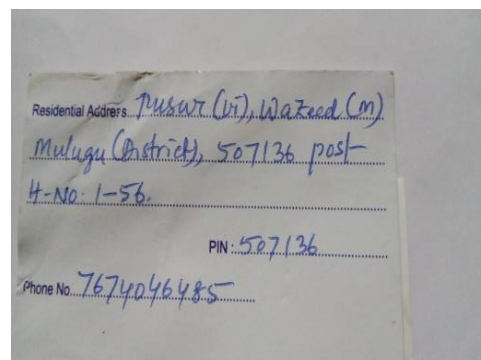 Residential Address Pusur (vi), Wazeed (m)
Mulugu (District), 507136 post
H-No: 1-56.
PIN : 507136
Phone No. 7674046485